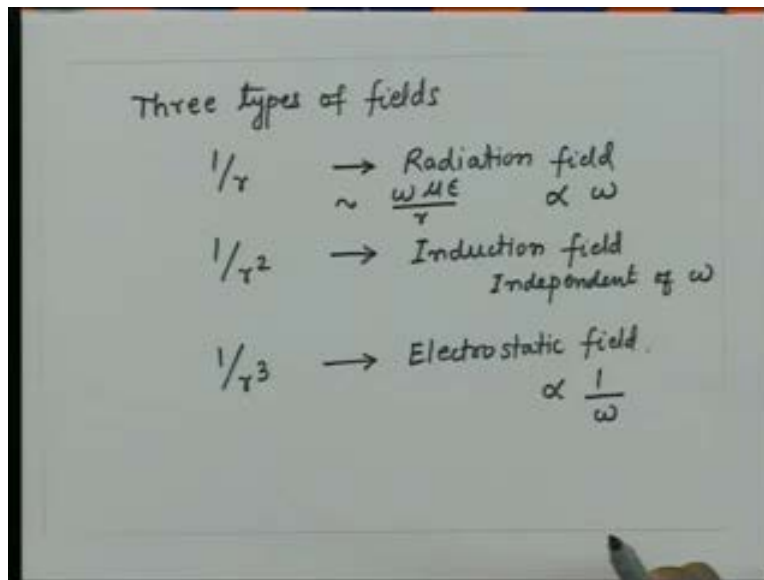 Three types of fields
1/r → Radiation field
~ ωμε/r ∝ ω
1/r² → Induction field
Independent of ω
1/r³ → Electrostatic field.
∝ 1/ω